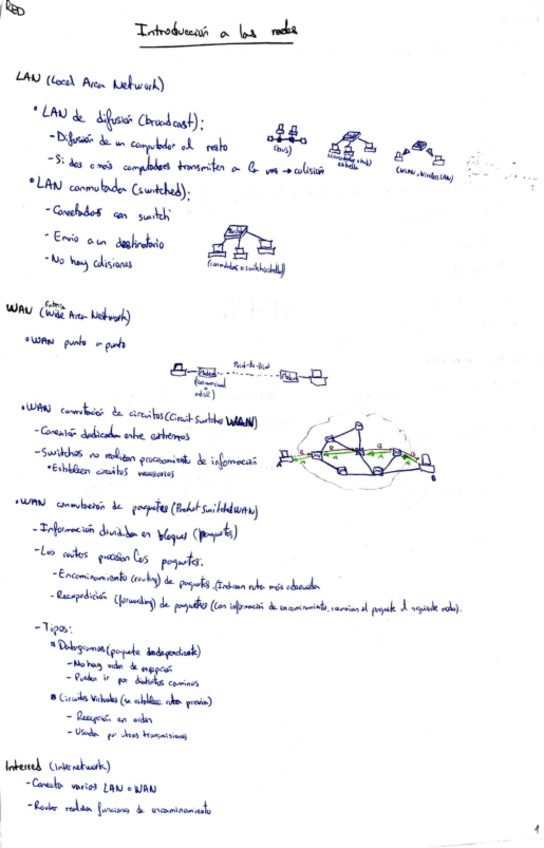 RED
Introducción a las redes
LAN (Local Area Network)
• LAN de difusión (broadcast):
- Difusión de un computador al resto
- Si dos o más computadores transmiten a la vez → colisión
(bus)
(WLAN, Wireless LAN)
• LAN conmutada (switched):
- Conectados con switch
- Envío a un destinatario
- No hay colisiones
WAN (Wide Area Network)
• WAN punto a punto
Point-to-Point
• WAN conmutación de circuitos (Circuit Switched WAN)
- Conexión dedicada entre extremos
- Switches no realizan procesamiento de información
• Establecen circuitos necesarios
A
B
• WAN conmutación de paquetes (Packet Switched WAN)
- Información dividida en bloques (paquetes)
- Los routers procesan los paquetes.
- Encaminamiento (routing) de paquetes (Indican ruta más adecuada
- Reexpedición (forwarding) de paquetes (Con información de encaminamiento, reenvían el paquete al siguiente nodo).
- Tipos:
Datagramas (paquete independiente)
- No hay orden de recepción
- Pueden ir por distintos caminos
Circuitos Virtuales (se establece ruta previa)
- Recepción en orden
- Usada por otras transmisiones
Interred (Internetwork)
- Conecta varios LAN o WAN
- Router realiza funciones de encaminamiento
1